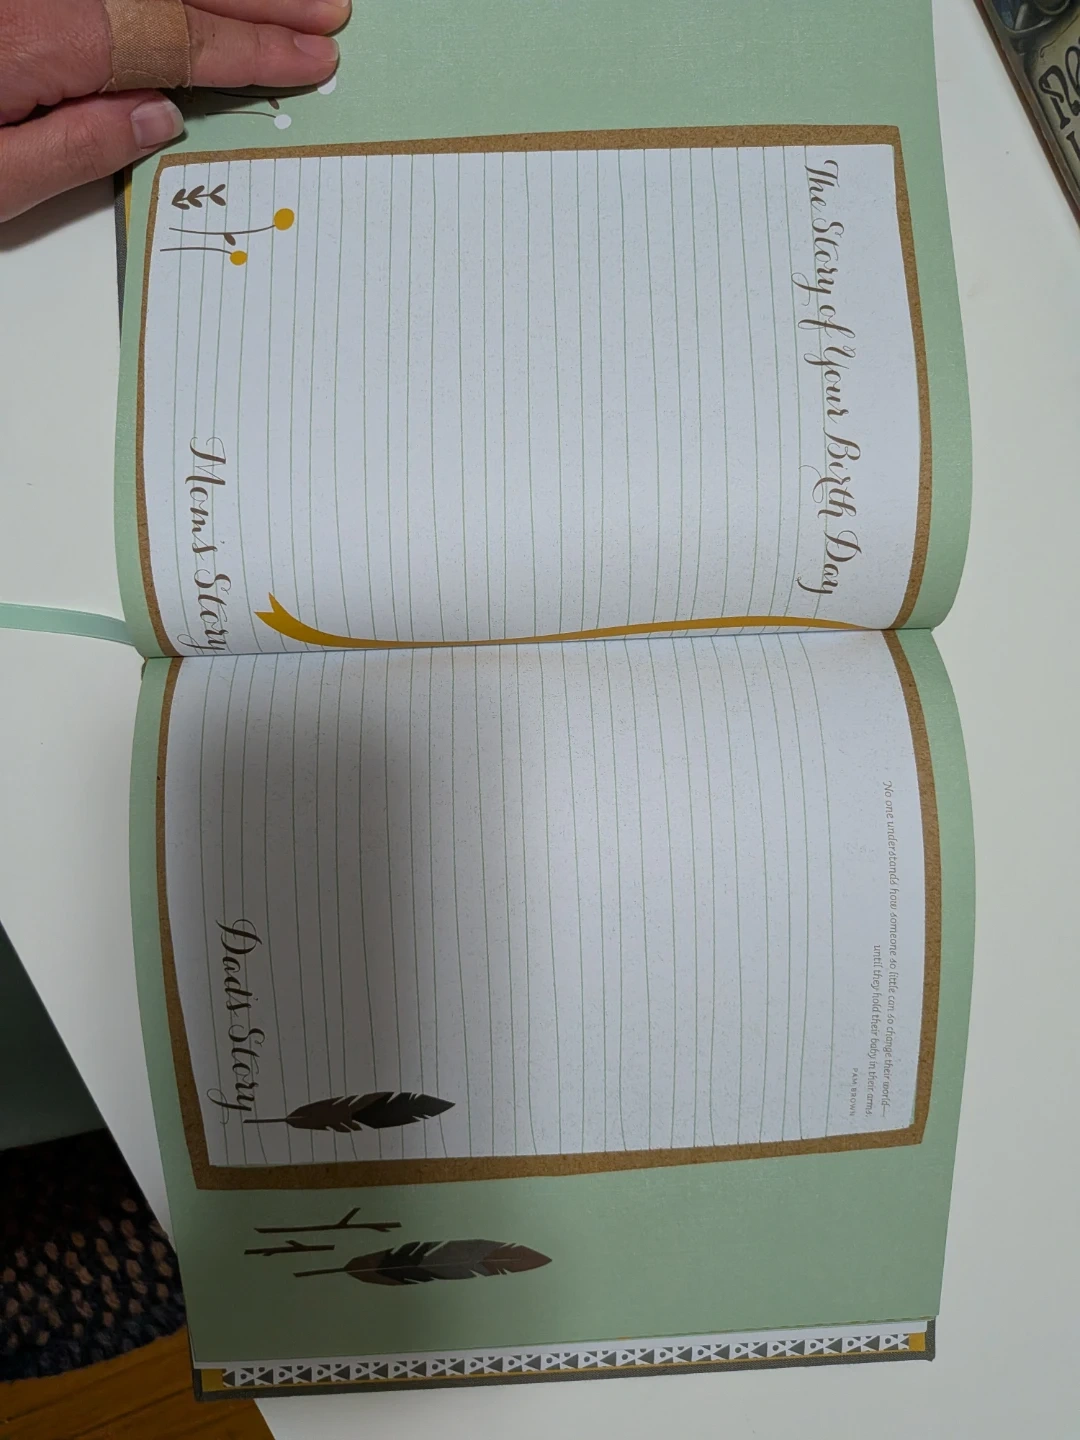 The Story of Your Birth Day
Mom's Story
No one understands how someone so little can so change their world—
until they hold their baby in their arms.
PAM BROWN
Dad's Story